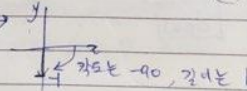 y
x
-1 각도는 -90, 길이는 1